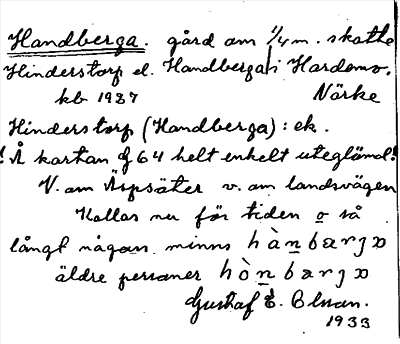 Handberga. gård om 1/4 m. skatte
Hinderstorp el. Handberga i Hardemo.
kb 1937 Närke
Hinderstorp (Handberga): ek.
! Å kartan af 64 helt enkelt uteglömd!
V. om Äspsäter v. om landsvägen
Kallas nu för tiden o så
långt någon minns hànbarjɒ
äldre personer hònbarjɒ
Gustaf E. Olsson.
1933